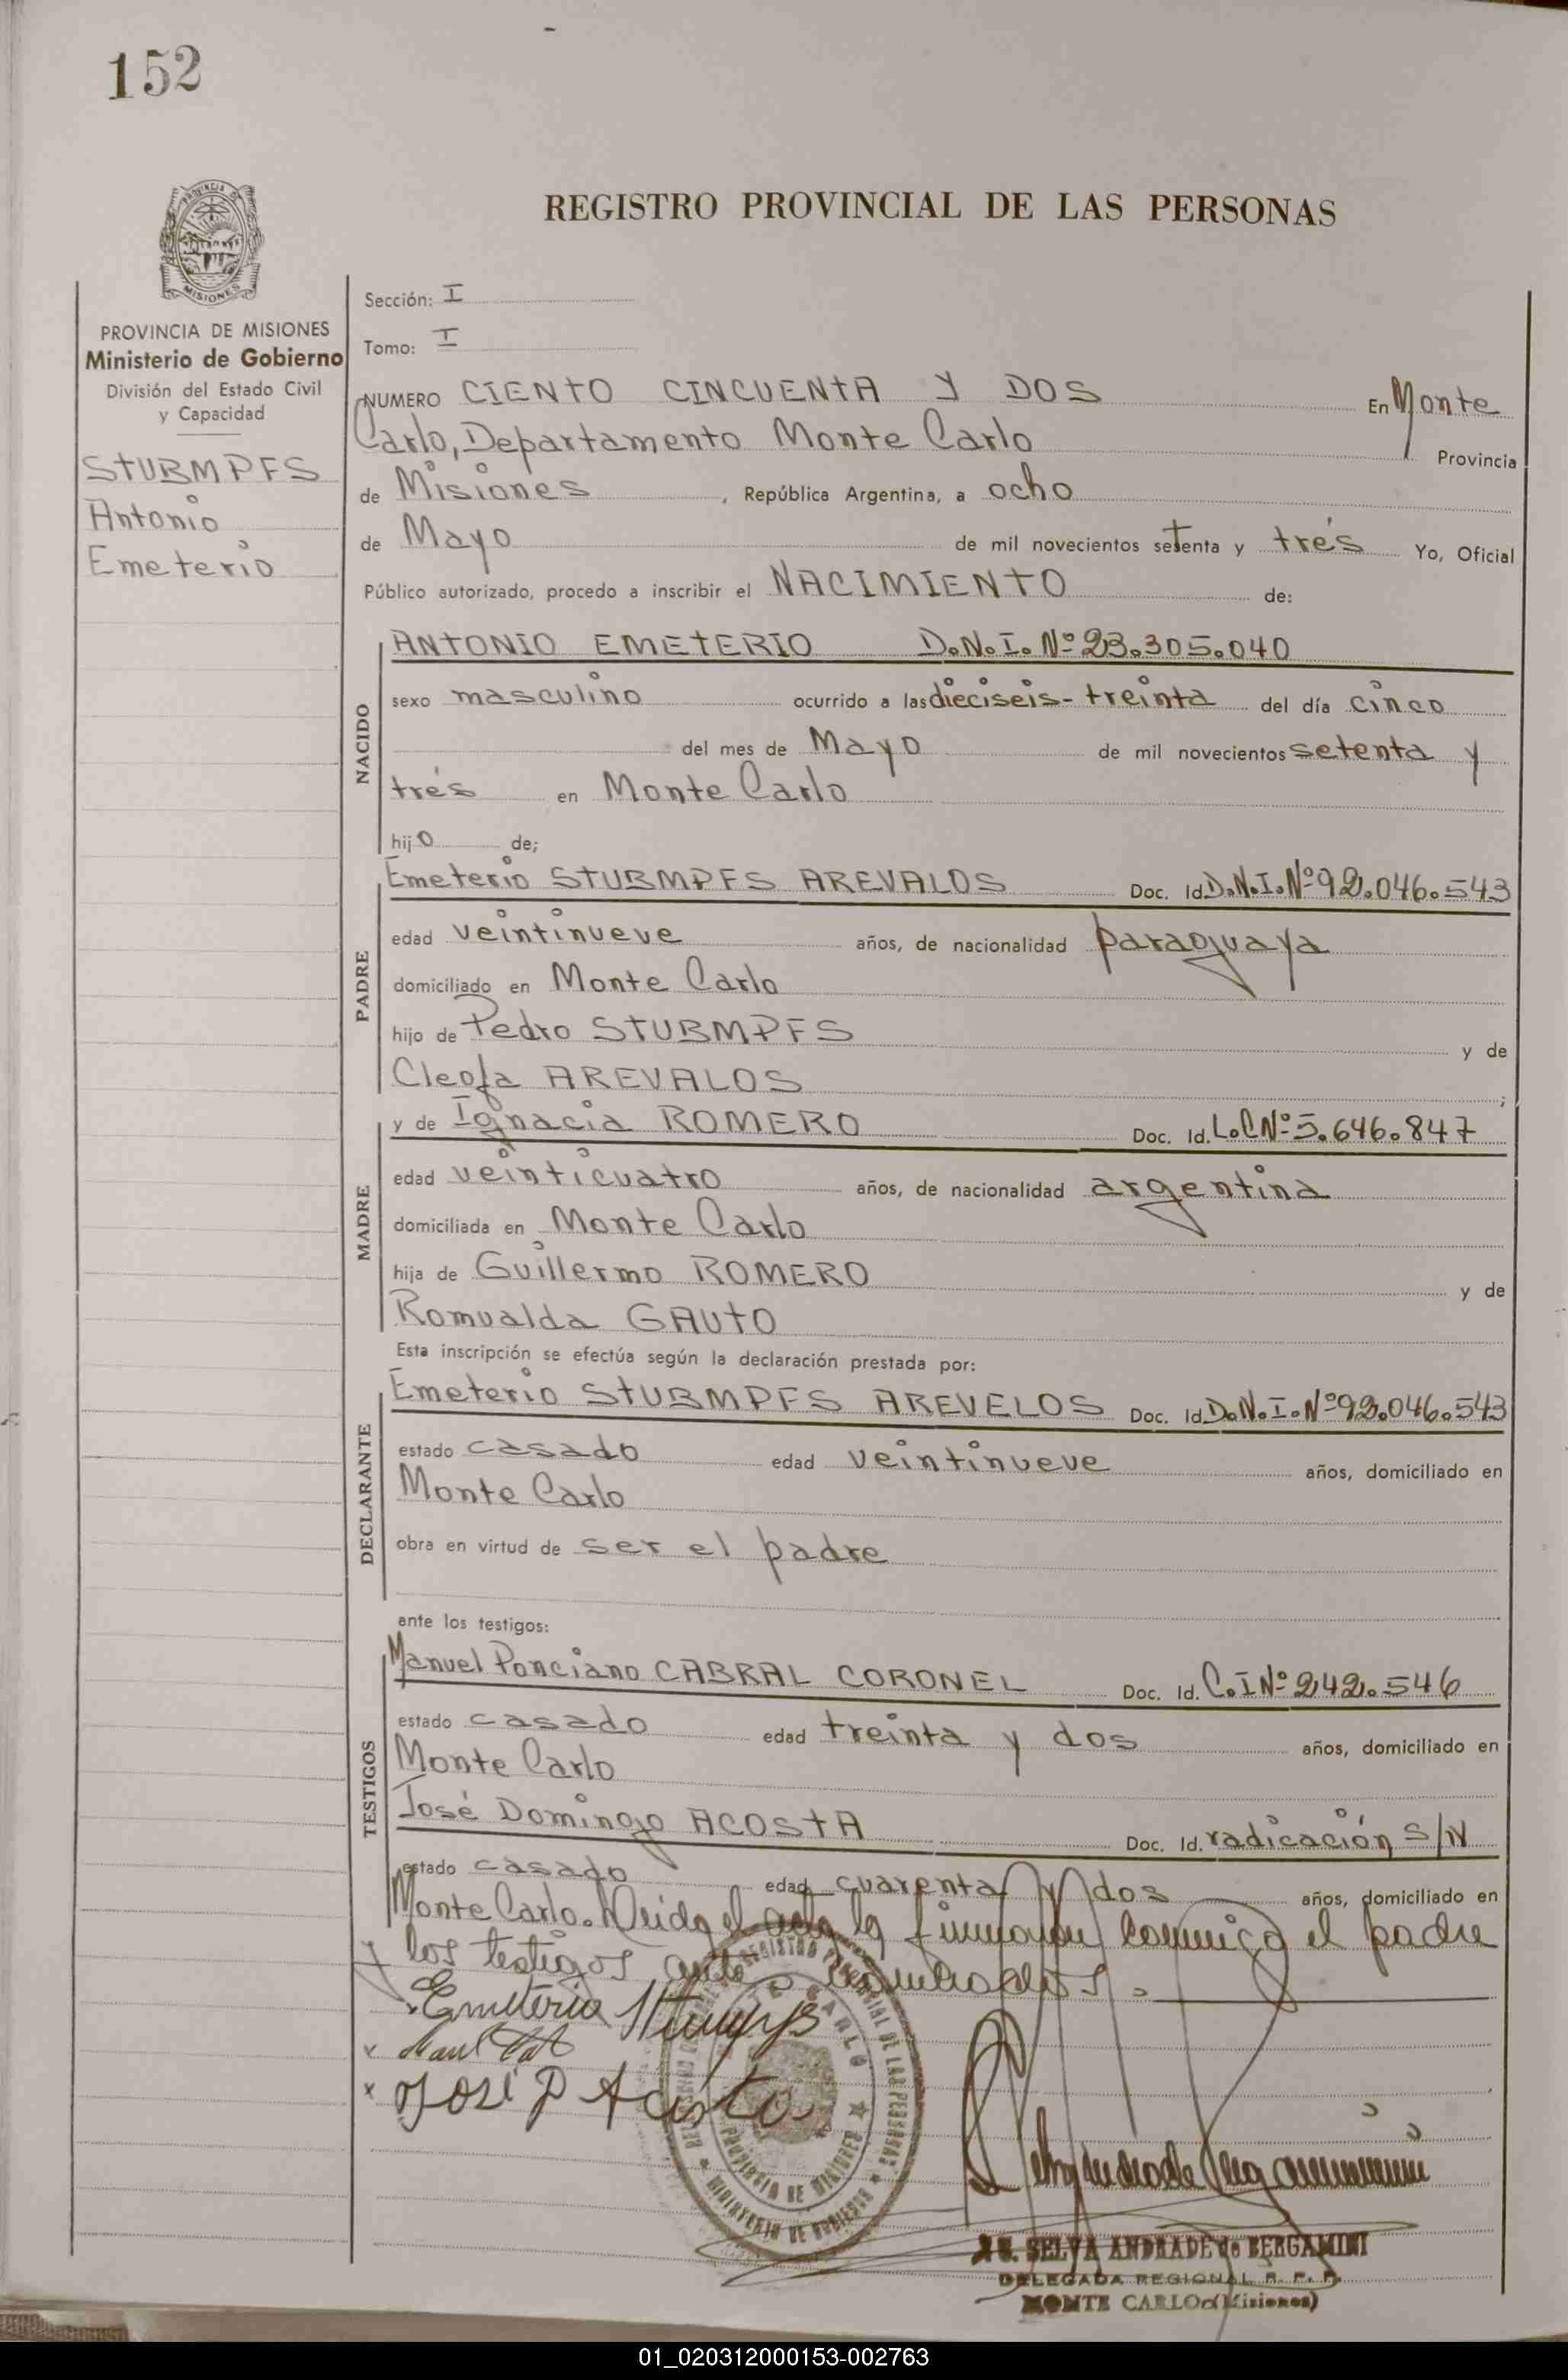 152
MISIONES
PROVINCIA DE MISIONES
Ministerio de Gobierno
División del Estado Civil
y Capacidad
STUBMPFS
Antonio
Emeterio
REGISTRO PROVINCIAL DE LAS PERSONAS
Sección: I
Tomo: I
NUMERO CIENTO CINCUENTA Y DOS En Monte
Carlo, Departamento Monte Carlo Provincia
de Misiones, República Argentina, a ocho
de Mayo de mil novecientos setenta y trés Yo, Oficial
Público autorizado, procedo a inscribir el NACIMIENTO de:
NACIDO
ANTONIO EMETERIO D.N.I. Nº 23.305.040
sexo masculino ocurrido a las dieciseis-treinta del día cinco
del mes de Mayo de mil novecientos setenta y
trés en Monte Carlo
hijo de;
PADRE
Emeterio STUBMPFS AREVALOS Doc. Id. D.N.I. Nº 92.046.543
edad veintinueve años, de nacionalidad paraguaya
domiciliado en Monte Carlo
hijo de Pedro STUBMPFS y de
Cleofa AREVALOS;
MADRE
y de Ignacia ROMERO Doc. Id. L.C Nº 5.646.847
edad veinticuatro años, de nacionalidad argentina
domiciliada en Monte Carlo
hija de Guillermo ROMERO y de
Romualda GAUTO
Esta inscripción se efectúa según la declaración prestada por:
DECLARANTE
Emeterio STUBMPFS AREVELOS Doc. Id. D.N.I. Nº 92.046.543
estado casado edad veintinueve años, domiciliado en
Monte Carlo
obra en virtud de ser el padre
ante los testigos:
TESTIGOS
Manuel Ponciano CABRAL CORONEL Doc. Id. C.I Nº 242.546
estado casado edad treinta y dos años, domiciliado en
Monte Carlo
José Domingo ACOSTA Doc. Id. radicación S/N
estado casado edad cuarenta y dos años, domiciliado en
Monte Carlo. Leida el acta la firman conmigo el padre
y los testigos ante nombrados.
Emeterio
José D Acosta
REGISTRO PROVINCIAL DE LAS PERSONAS
MONTE CARLO
PROVINCIA DE MISIONES
MINISTERIO DE GOBIERNO
SELVA ANDRADE de BERGAMINI
DELEGADA REGIONAL R. P. P.
MONTE CARLO (Misiones)
01_020312000153-002763